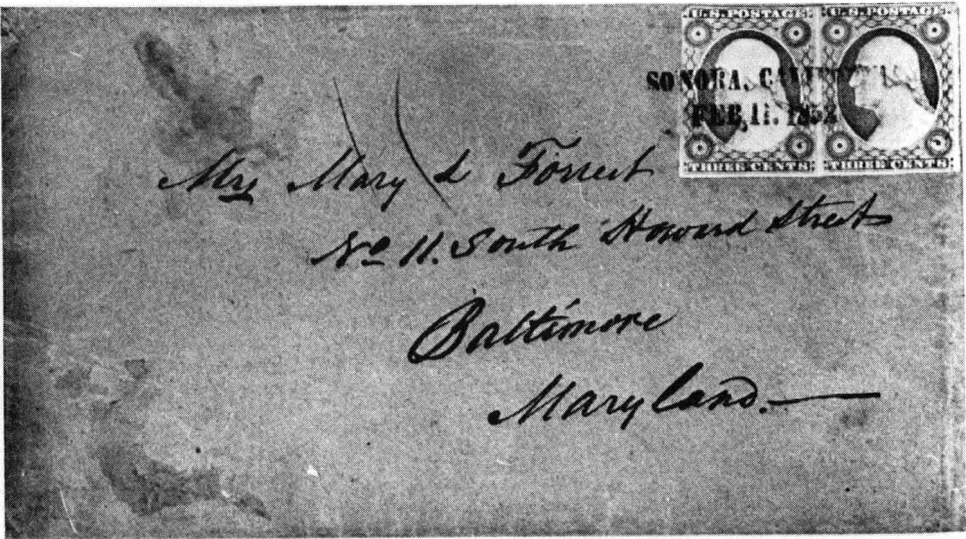 U.S. POSTAGE. U.S. POSTAGE.
SONORA, CALIFORNIA
FEB. 11. 1852
THREE CENTS THREE CENTS
Mrs Mary L Forrest
No 11. South Howard Street
Baltimore
Maryland.